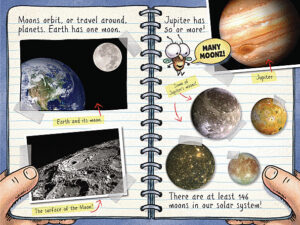 Moons orbit, or travel around,
planets. Earth has one moon.
Earth and its moon
The surface of the Moon!
Jupiter has
50 or more!
MANY
MOONZ!
Jupiter
Some of
Jupiter's moons!
There are at least 146
moons in our solar system!